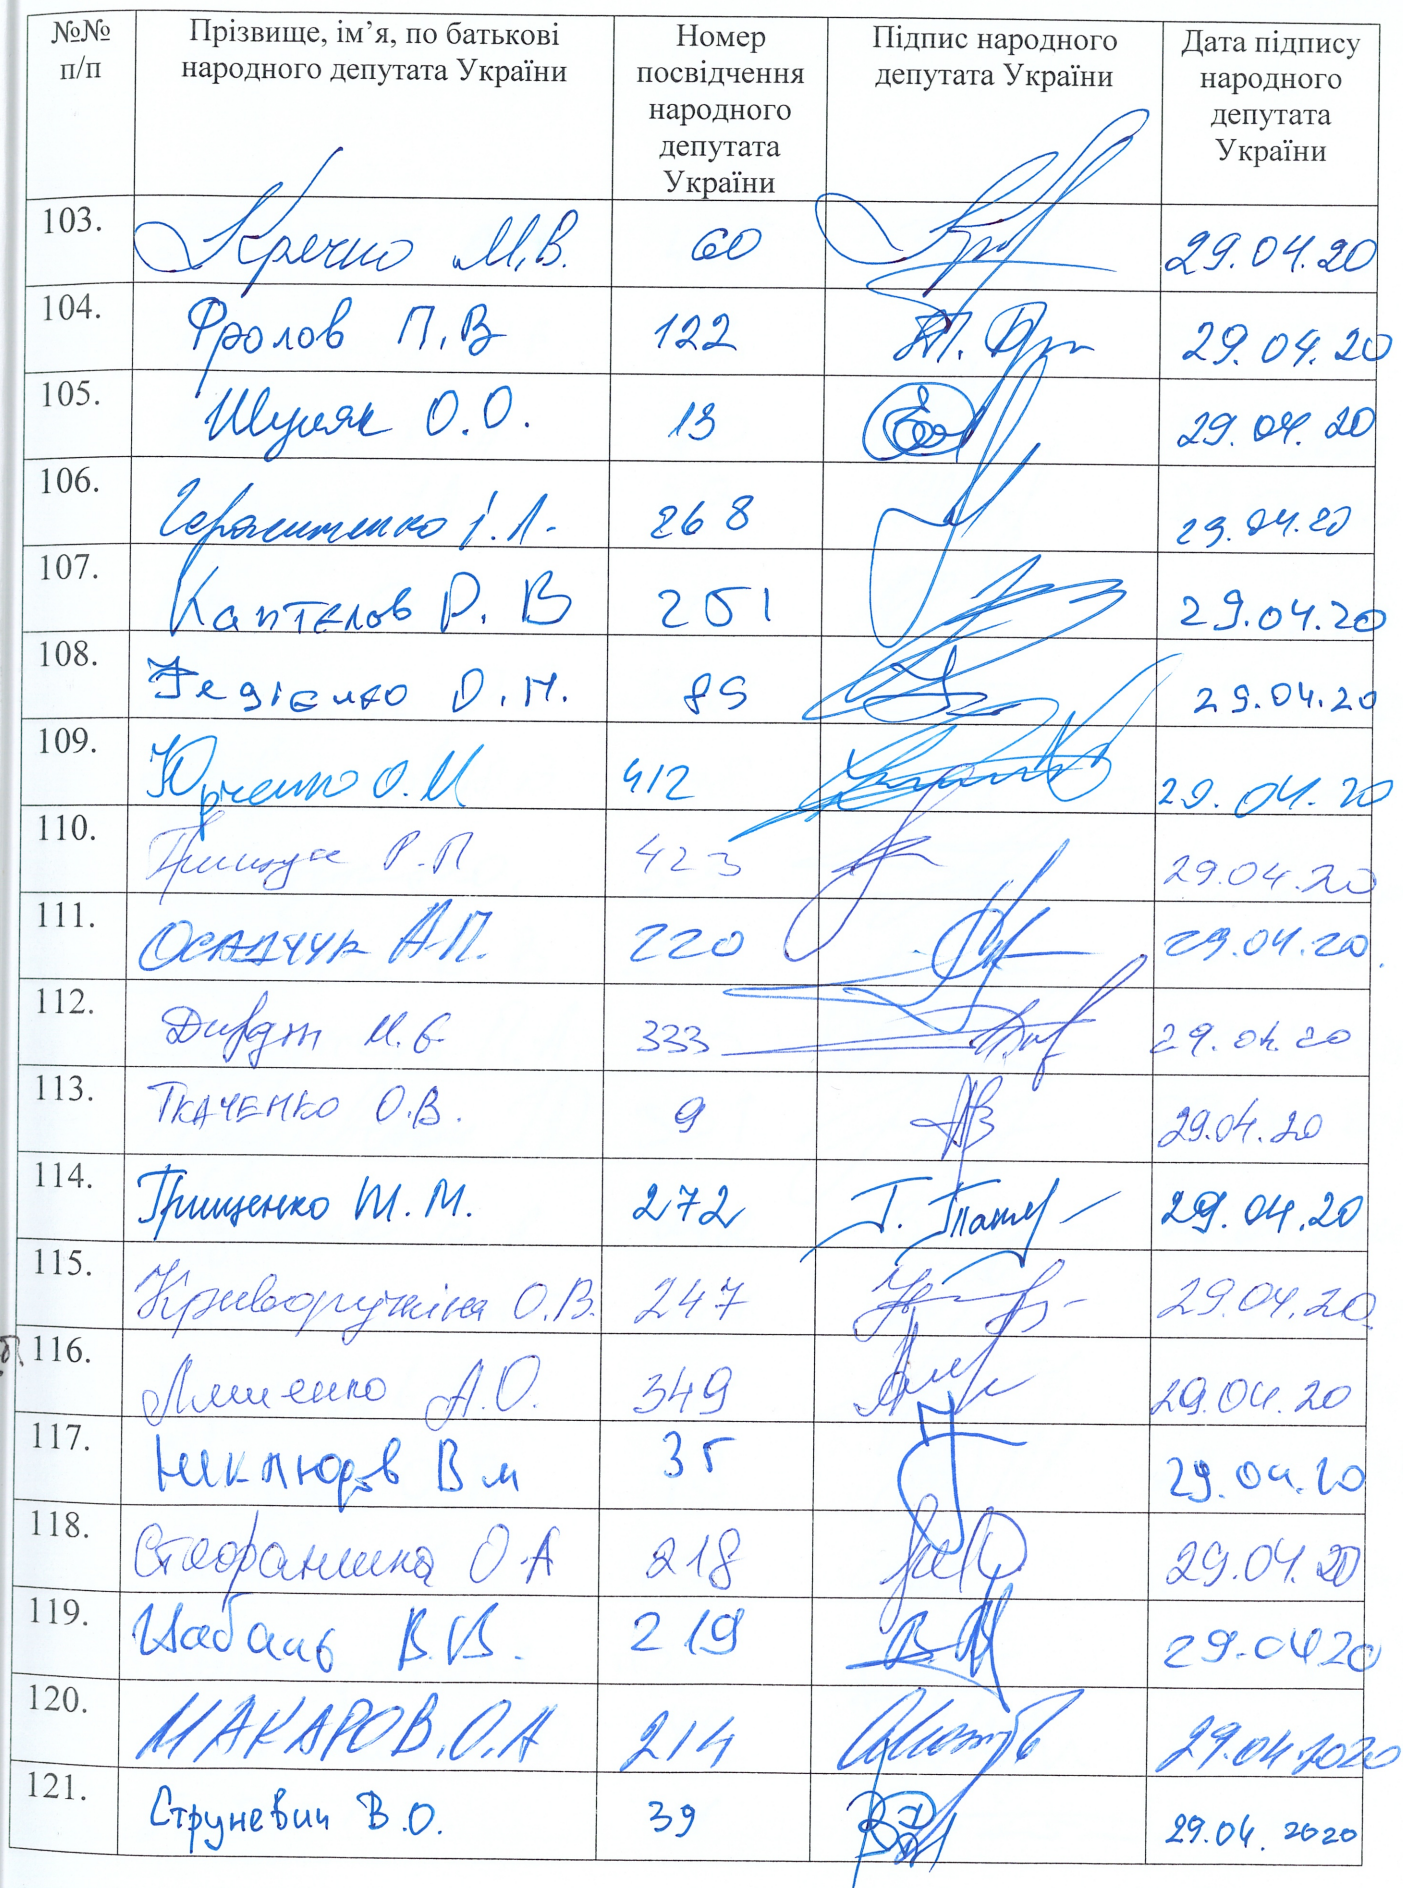 №№ п/п
Прізвище, ім’я, по батькові народного депутата України
Номер посвідчення народного депутата України
Підпис народного депутата України
Дата підпису народного депутата України
103. М.В. 60 29.04.20
104. Фролов П.В 122 29.04.20
105. Шуляк О.О. 13 29.04.20
106. Герасименко І.Л. 268 29.04.20
107. Каптєлов Р. В 251 29.04.20
108. О.М. 89 29.04.20
109. Юрченко О.М 412 29.04.20
110. Грищук Р.П 423 29.04.20
111. Осадчук А.П. 220 29.04.20.
112. Дирдін М.Є. 333 29.04.20
113. Ткаченко О.В. 9 29.04.20
114. Грищенко Т.М. 272 Г. 29.04.20
115. Криворучкіна О.В. 247 29.04.20.
116. Ляшенко А.О. 349 29.04.20
117. Неклюдов В м 35 29.04.20
118. Стефанишина О.А 218 29.04.20
119. Цабаль В.В. 219 29.04.20
120. МАКАРОВ.О.А 214 29.04.2020
121. Струневич В.О. 39 29.04.2020